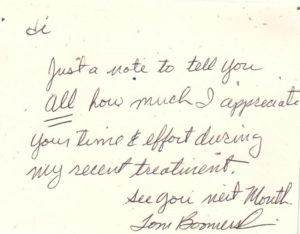 Hi
Just a note to tell you
All how much I appreciate
your time & effort during
my recent treatment.
See you next Month.
Tom